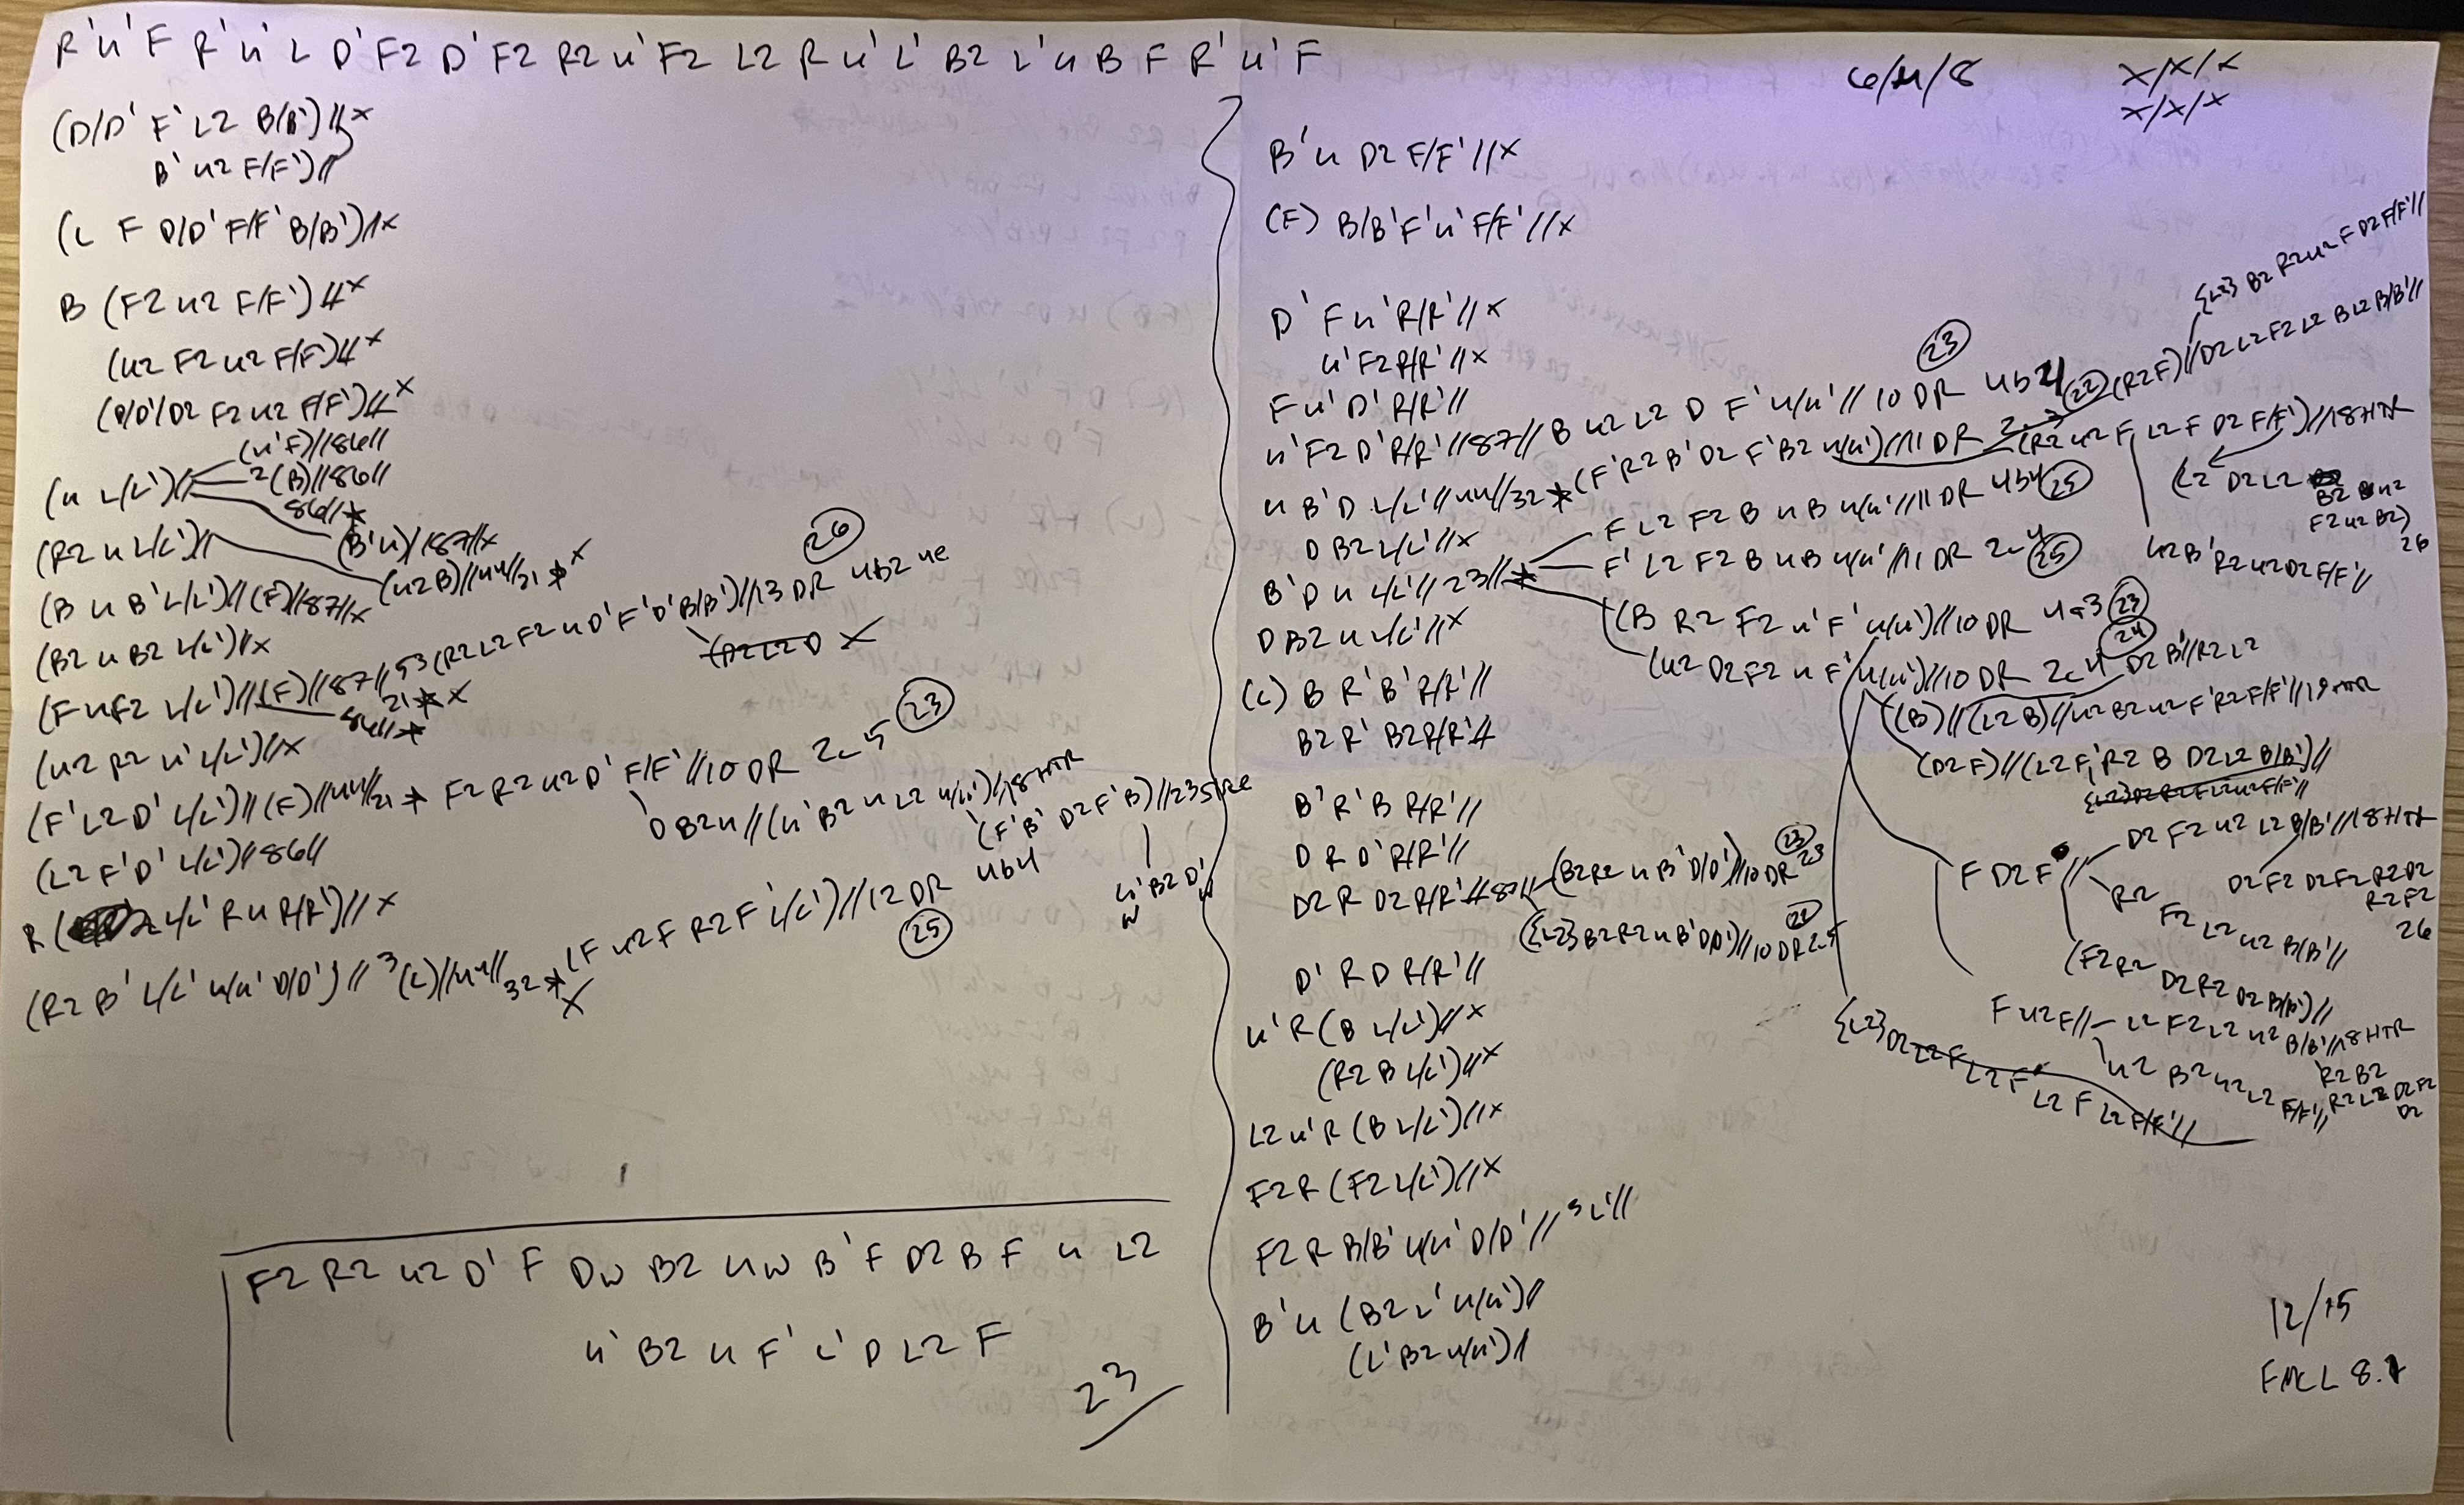 R'u'F R'u'L D'F2 D'F2 R2 u'F2 L2 R u'L' B2 L'u B F R'u'F
6/4/8
x/x/x
x/x/x
(D/D' F'L2 B/B')//x
B'u2 F/F')//
(L F D/D' F/F' B/B')//x
B (F2 u2 F/F')//x
(u2 F2 u2 F/F')//x
(D/D'/D2 F2 u2 F/F')//x
(u L/L')//
(u'F)//86//
2(B)//86//
86//*
(B'u)//87//x
(R2 u L/L')//
(u2B)//44//21*x
(B u B'L/L')//(F)//87//x
(B2 u B2 L/L')//x
(F u F2 L/L')//(F)//87//53(R2 L2 F2 u D'F'D'B/B')//13 DR 4b2 4e
26
21*x
84//*
(u2 R2 u'L/L')//x
(F'L2D'L/L')//(F)//44//21* F2 R2 u2 D'F/F'//10 DR 2c5
23
D B2 u//(u'B2 u L2 u/u')//18HTR
(F'B'D2F'B)//23
u'B2 D'
w w
(L2 F'D'L/L')//86//
R ( L/L' R u R/R')//x
(R2 B'L/L'u/u'D/D')//3(L)//44//32*(F u2 F R2 F L/L')//12 DR 4b4
x
25
F2 R2 u2 D'F Dw B2 uw B'F D2 B F u L2
u'B2 u F'L'D L2 F
23
B'u D2 F/F'//x
(F) B/B'F'u'F/F'//x
D'F u'R/R'//x
u'F2 R/R'//x
F u'D'R/R'//
u'F2 D'R/R'//87//B u2 L2 D F'u/u'//10 DR 4b4
23
u B'D L/L'//44//32*(F'R2 B'D2 F'B2 u/u')//11 DR 2c4
22
(R2F)//D2 L2 F2 L2 B L2 B/B'//
{L2} B2 R2 u2 F D2 F/F'//
(R2 u2 F L2 F D2 F/F')//18HTR
(L2 D2 L2 B2 u2
F2 u2 B2)
26
u2 B'R2 u2 D2 F/F'//
D B2 L/L'//x
B'D u L/L'//23//*
F L2 F2 B u B u/u'//11 DR 4b4
25
F'L2 F2 B u B u/u'//11 DR 2c4
25
(B R2 F2 u'F'u/u')//10 DR 4a3
23
(u2 D2 F2 u F'u/u')//10 DR 2c4
24
D2 B'//R2 L2
(B)//(L2B)//u2 B2 u2 F'R2 F/F'//19HTR
(D2 F)//(L2 F'R2 B D2 L2 B/B')//
D B2 u L/L'//x
(L) B R'B'R/R'//
B2 R'B2 R/R'//
B'R'B R/R'//
D R D'R/R'//
D2 R D2 R/R'//87//(B2 R2 u B'D/D')//10 DR
23
({L2} B2 R2 u B'D/D')//10 DR 2c5
D'R D R/R'//
u'R (B L/L')//x
(R2 B L/L')//x
L2 u'R (B L/L')//x
F2 R (F2 L/L')//x
F2 R B/B'u/u'D/D'//3L'//
B'u (B2 L'u/u')//
(L'B2 u/u')//
F D2 F'//
D2 F2 u2 L2 B/B'//18HTR
D2 F2 D2 F2 R2 D2
R2 F2
26
R2 F2 L2 u2 B/B'//
(F2 R2 D2 R2 D2 B/B')//
F u2 F//
L2 F2 L2 u2 B/B'//18HTR
R2 B2
R2 L2 D2 F2
D2
u2 B2 u2 L2 F/F'//
{L2} D2 L2 F L2 F' L2 F L2 F/F'//
12/15
FMCL 8.1